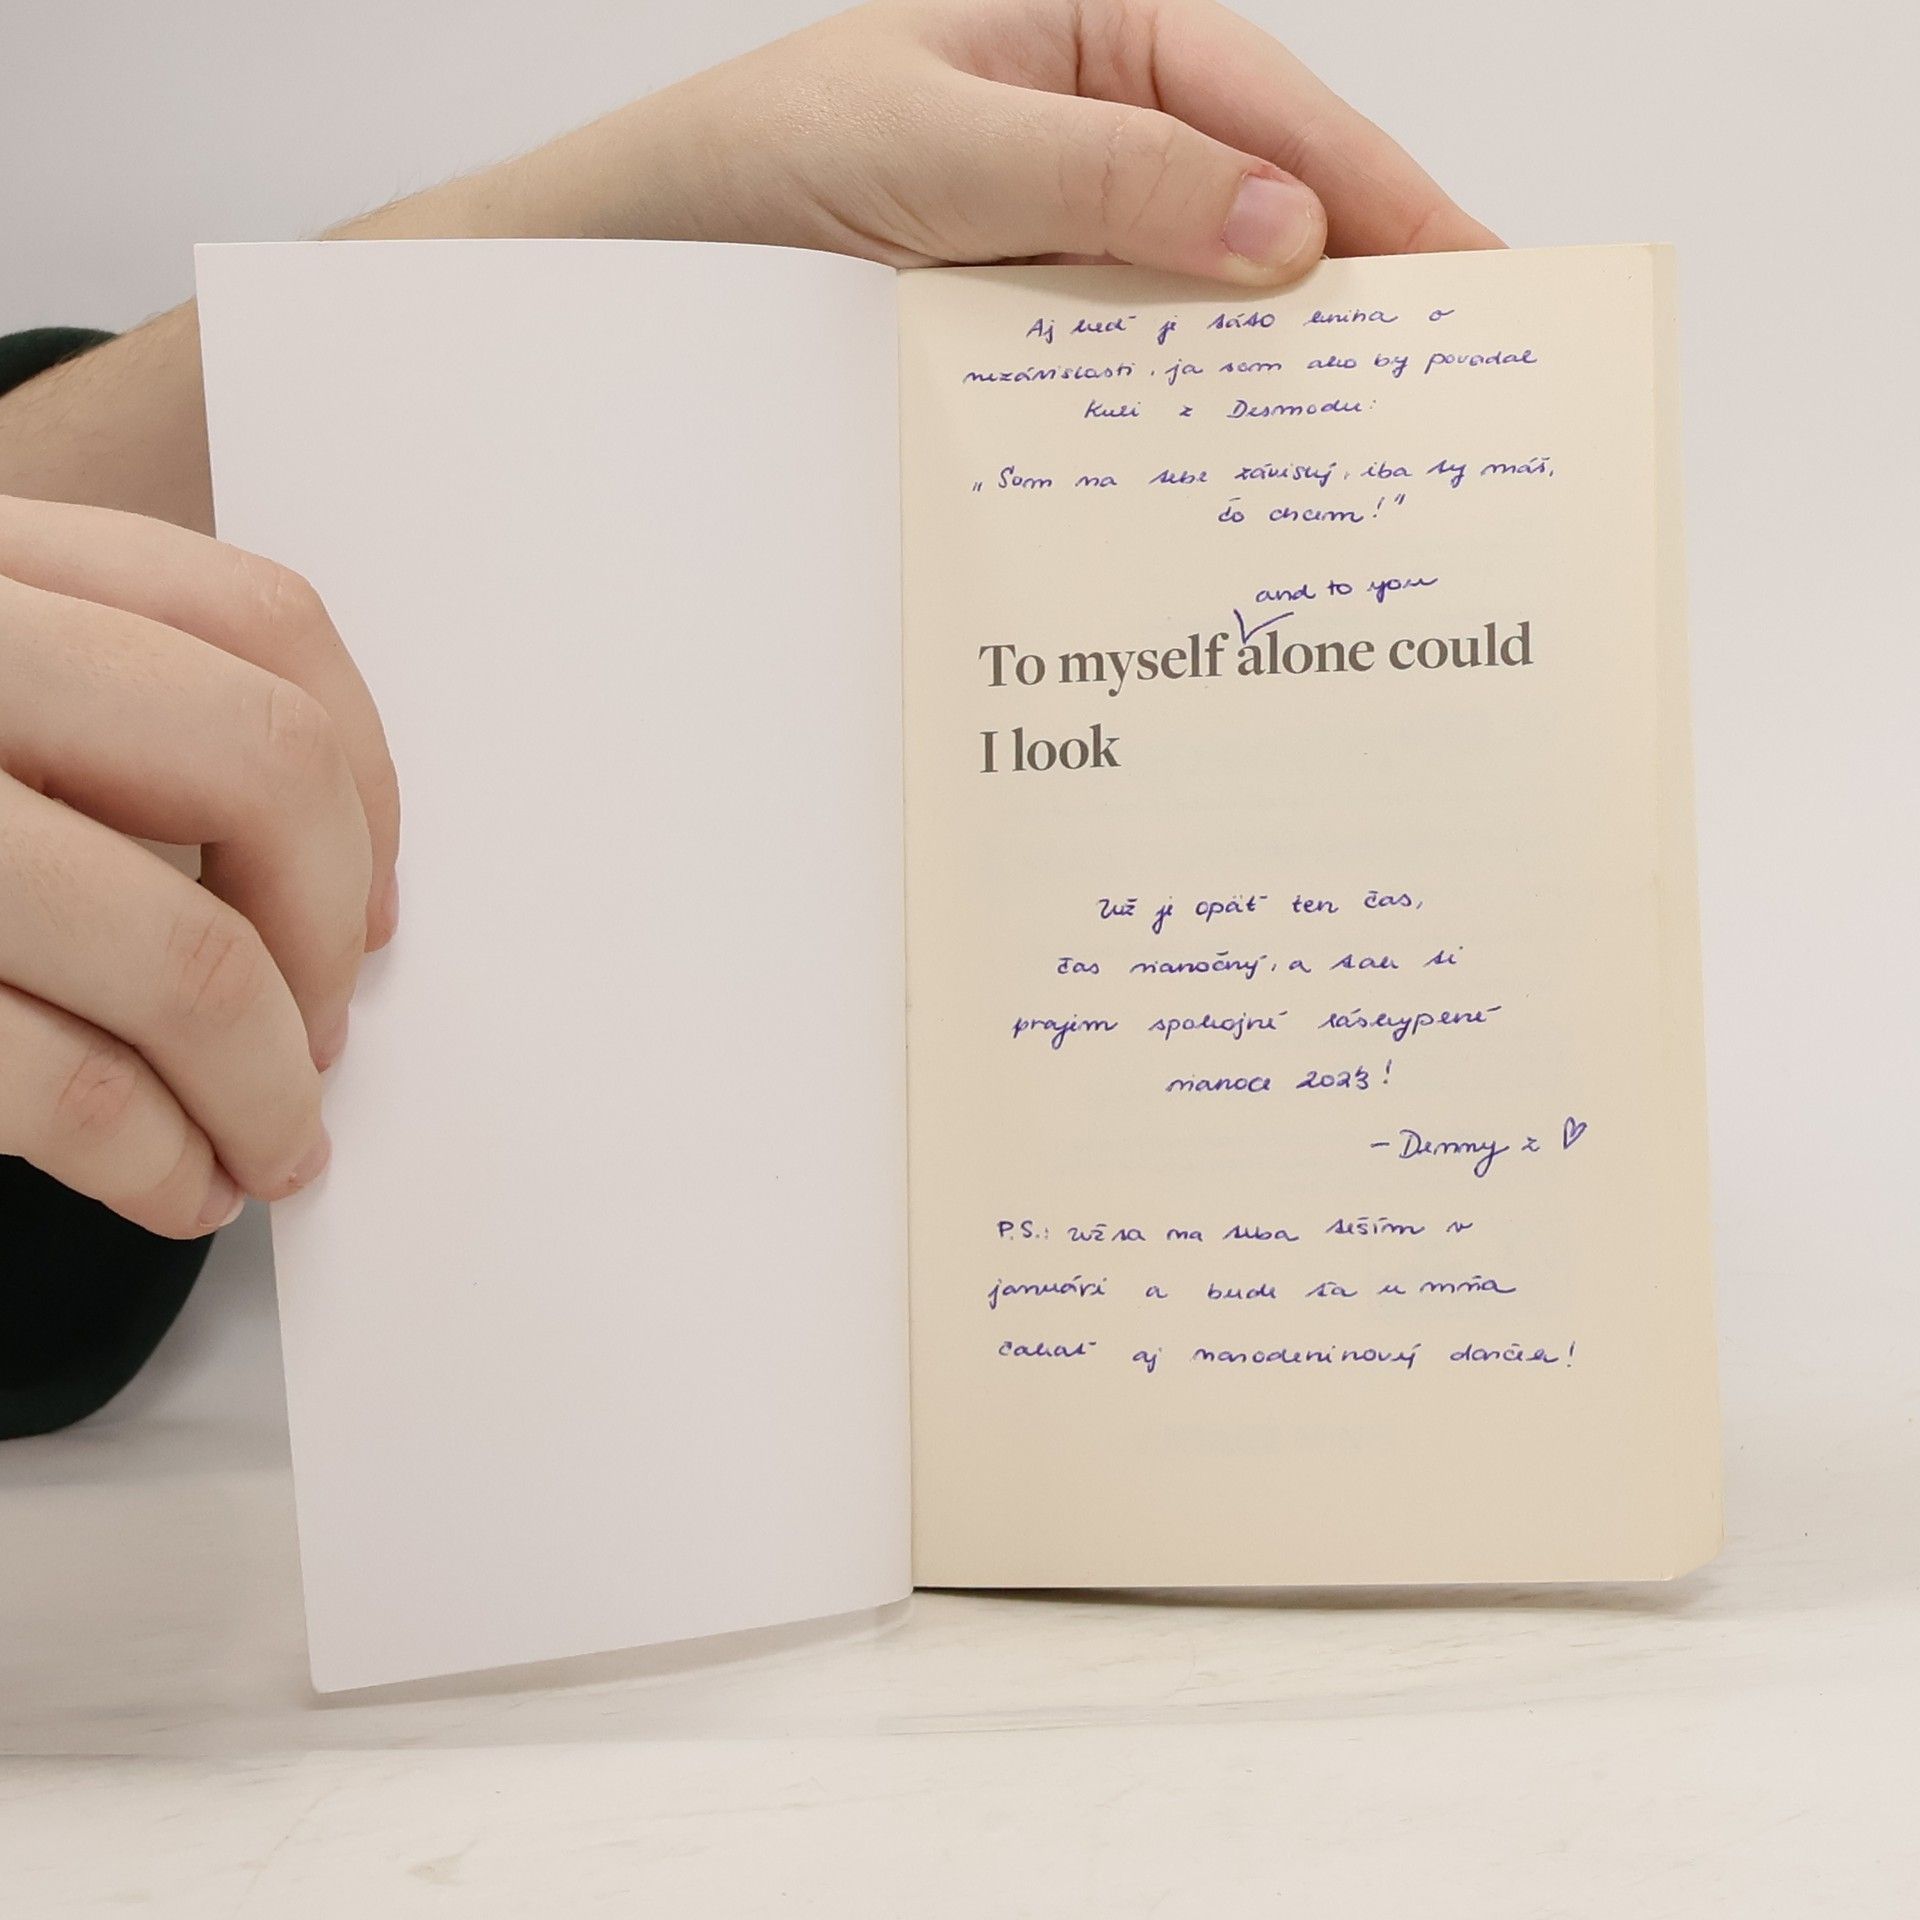 Aj keď je táto kniha o
nezávislosti, ja som ako by povedal
Kuli z Desmodu:
„Som na tebe závislý, iba ty máš,
čo chcem!“
and to you
To myself alone could
I look
Už je opäť ten čas,
čas vianočný, a tak ti
prajem spokojné láskyplné
vianoce 2023!
- Denny z ♡
P.S.: už sa na teba teším v
januári a bude ťa u mňa
čakať aj narodeninový darček!